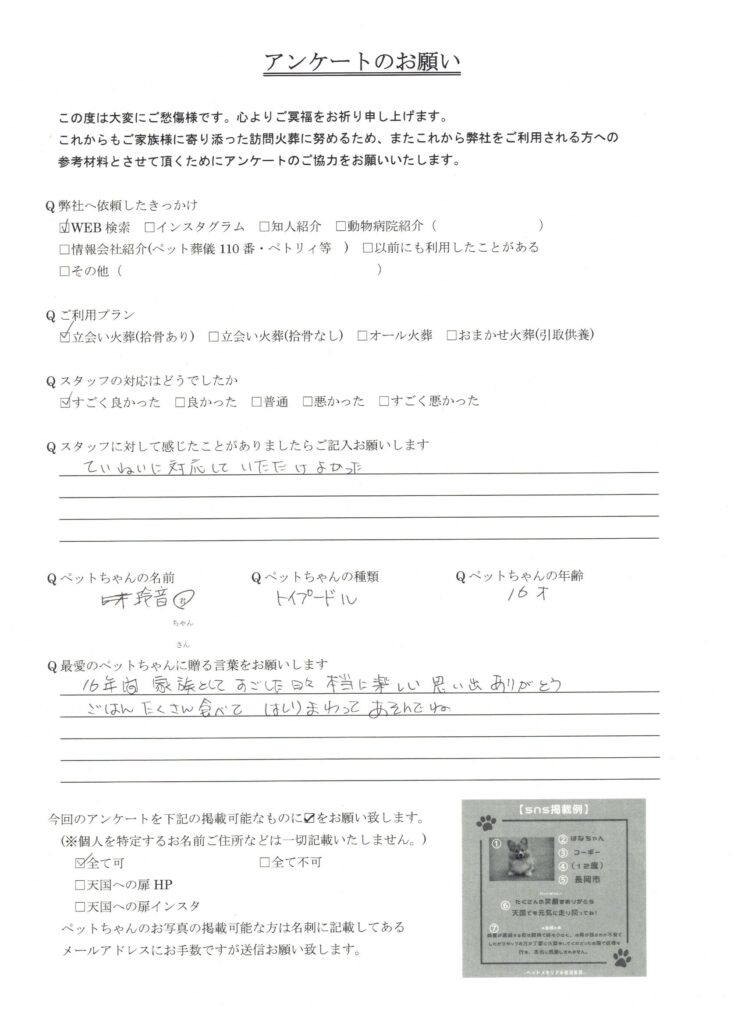 アンケートのお願い
この度は大変にご愁傷様です。心よりご冥福をお祈り申し上げます。
これからもご家族様に寄り添った訪問火葬に努めるため、またこれから弊社をご利用される方への
参考材料とさせて頂くためにアンケートのご協力をお願いいたします。
Q 弊社へ依頼したきっかけ
☑WEB 検索 □インスタグラム □知人紹介 □動物病院紹介（ ）
□情報会社紹介(ペット葬儀 110 番・ペトリィ等 ) □以前にも利用したことがある
□その他（ ）
Q ご利用プラン
☑立会い火葬(拾骨あり) □立会い火葬(拾骨なし) □オール火葬 □おまかせ火葬(引取供養)
Q スタッフの対応はどうでしたか
☑すごく良かった □良かった □普通 □悪かった □すごく悪かった
Q スタッフに対して感じたことがありましたらご記入お願いします
ていねいに対応して いただけ よかった
Q ペットちゃんの名前 Q ペットちゃんの種類 Q ペットちゃんの年齢
玲音 君 トイプードル 16才
ちゃん
さん
Q 最愛のペットちゃんに贈る言葉をお願いします
16年間 家族として すごした日々 本当に楽しい 思い出 ありがとう
ごはん たくさん食べて はしりまわって あそんでね
今回のアンケートを下記の掲載可能なものに☑をお願い致します。
(※個人を特定するお名前ご住所などは一切記載いたしません。)
☑全て可 □全て不可
□天国への扉 HP
□天国への扉インスタ
ペットちゃんのお写真の掲載可能な方は名刺に記載してある
メールアドレスにお手数ですが送信お願い致します。
【sns掲載例】
①
② はなちゃん
③ コーギー
④ (12歳)
⑤ 長岡市
⑥ たくさんの笑顔をありがとう
天国でも元気に走り回ってね！
⑦